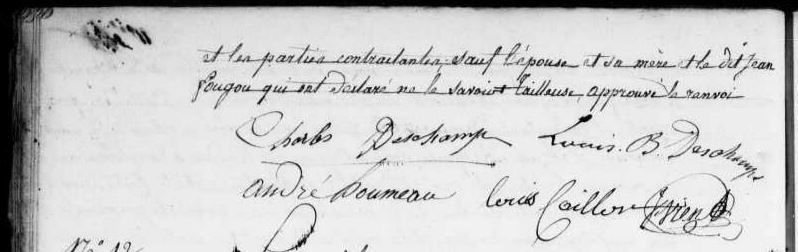 et les parties contractantes, sauf l'épouse et sa mère et le dit Jean
Fougou qui ont declaré ne le savoir Tailleuse, approuvé le renvoi
Charles Deschamp Louis. B Deschamps
andré Poumeau louis Caillon
No. 12